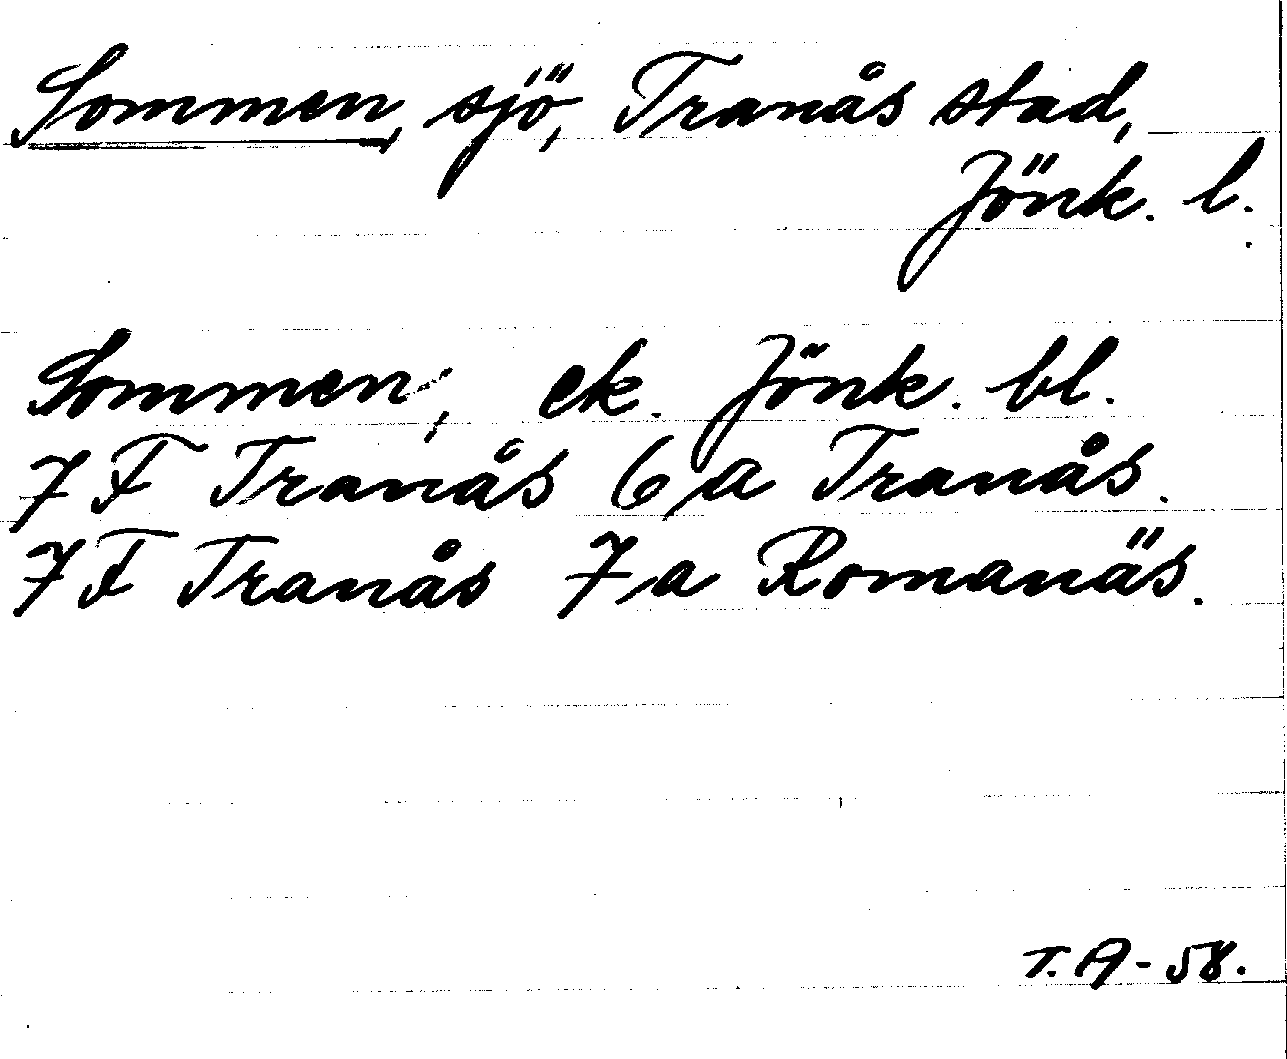 Sommen, sjö, Tranås stad,
Jönk. l.
Sommen, ek. Jönk. bl.
7 F Tranås 6 a Tranås.
7 F Tranås 7 a Romanäs.
T. A - 58.